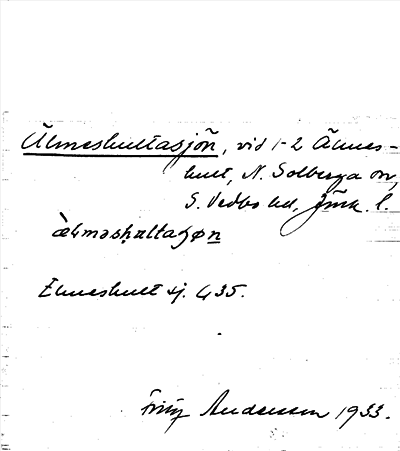 Älmeshultasjön, vid 1-2 Älmes-
hult, N. Solberga sn,
S. Vedbo hd, Jönk. l.
æ̀lməshɷltaʃøn
Elmeshult sj. G35.
Fritz Andersson 1933.